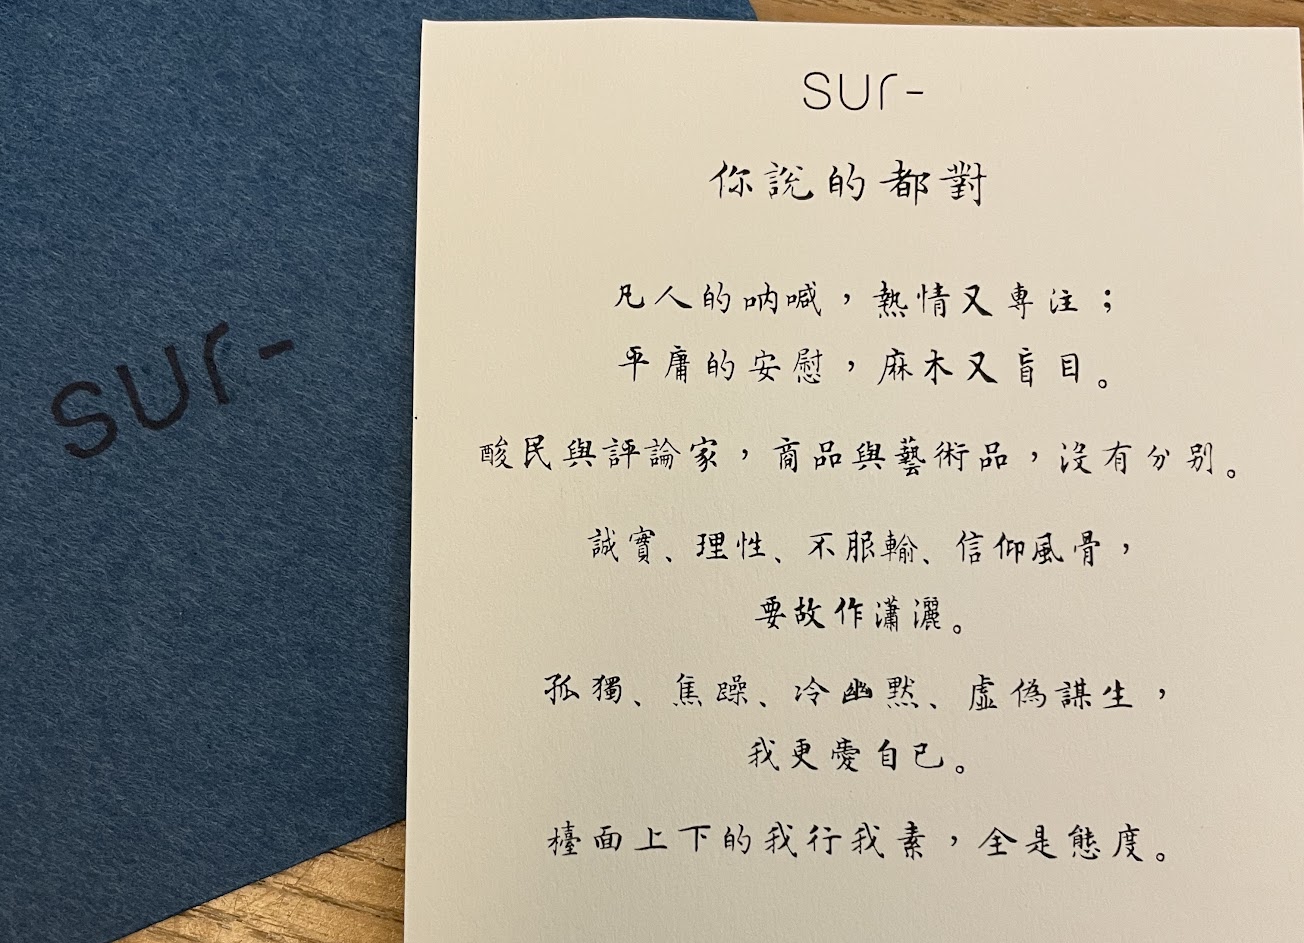 sur-
sur-
你說的都對
凡人的吶喊，熱情又專注；
平庸的安慰，麻木又盲目。
酸民與評論家，商品與藝術品，沒有分別。
誠實、理性、不服輸、信仰風骨，
要故作瀟灑。
孤獨、焦躁、冷幽默、虛偽謀生，
我更愛自己。
檯面上下的我行我素，全是態度。